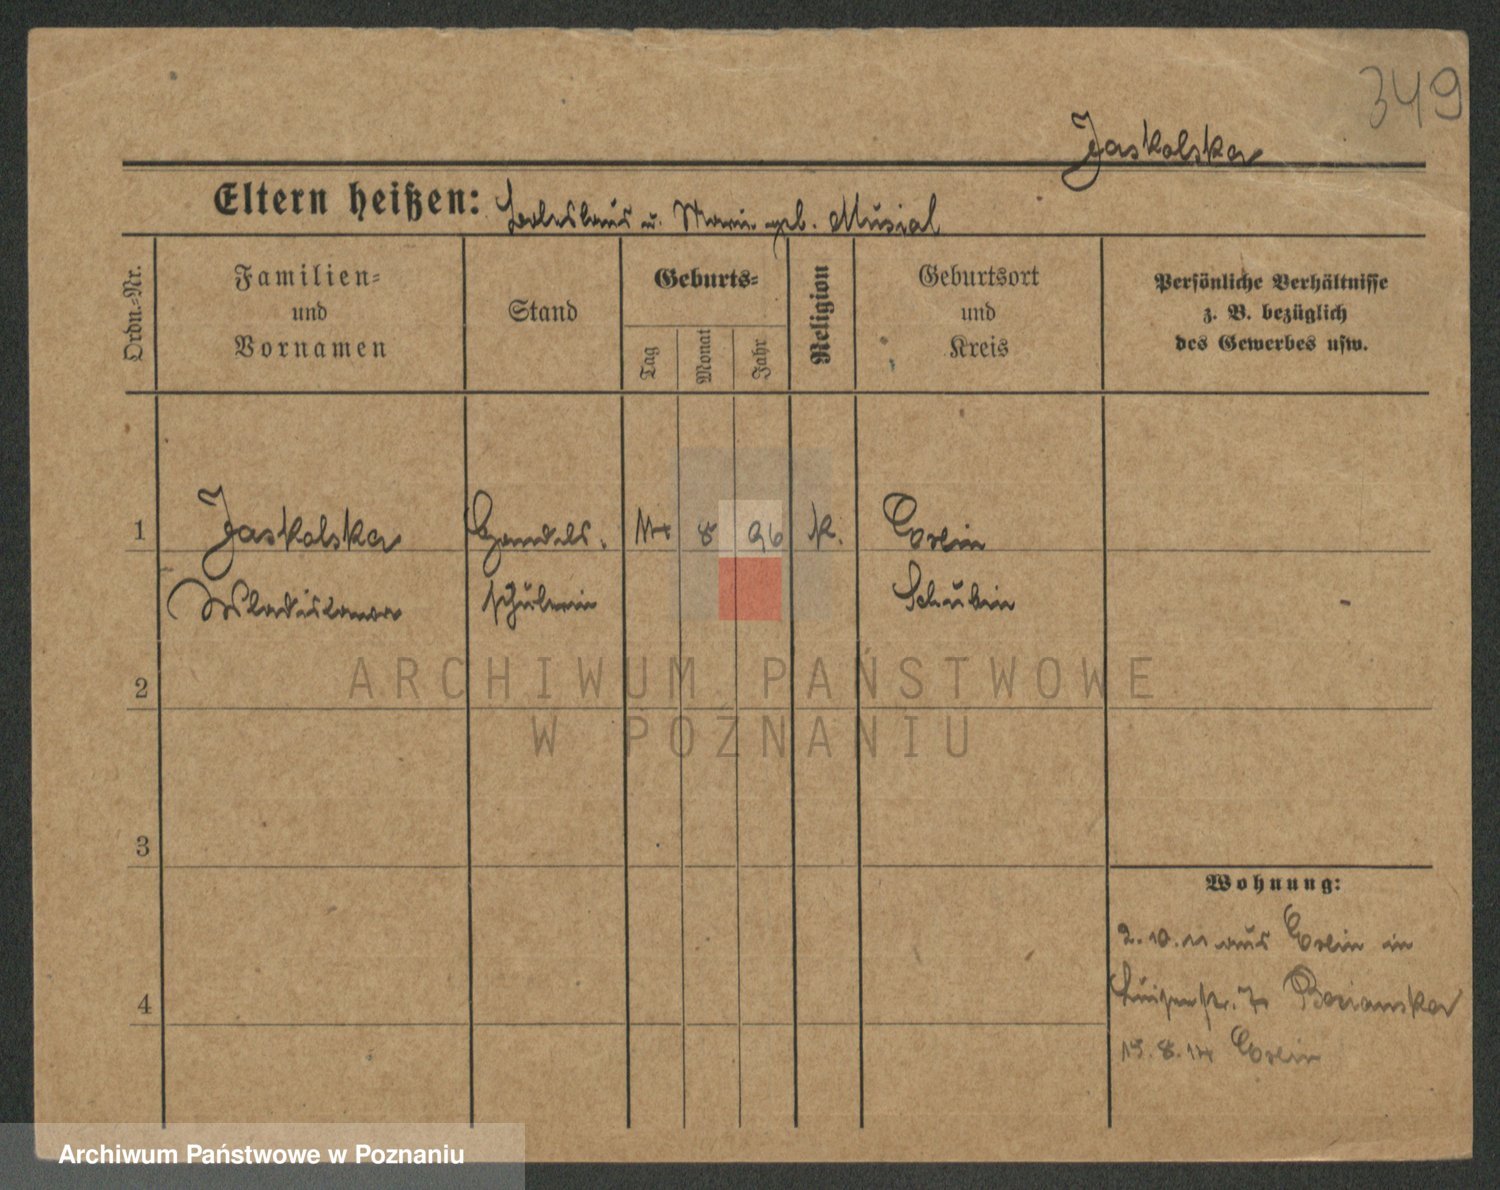 349
Jaskolska
Eltern heißen: Boleslaus u. Marie geb. Musial
Ordn.-Nr.
Familien- und Vornamen
Stand
Geburts-
Tag
Monat
Jahr
Religion
Geburtsort und Kreis
Persönliche Verhältnisse
z. B. bezüglich
des Gewerbes usw.
1 Jaskolska Handels- 14 8 96 K. Exin
Wladislawa schülerin Schubin -
ARCHIWUM PAŃSTWOWE
2
W POZNANIU
3
Wohnung:
2. 10. 11 aus Exin in
4 Luisenstr. Bozianska
15. 8. 14 Exin
Archiwum Państwowe w Poznaniu